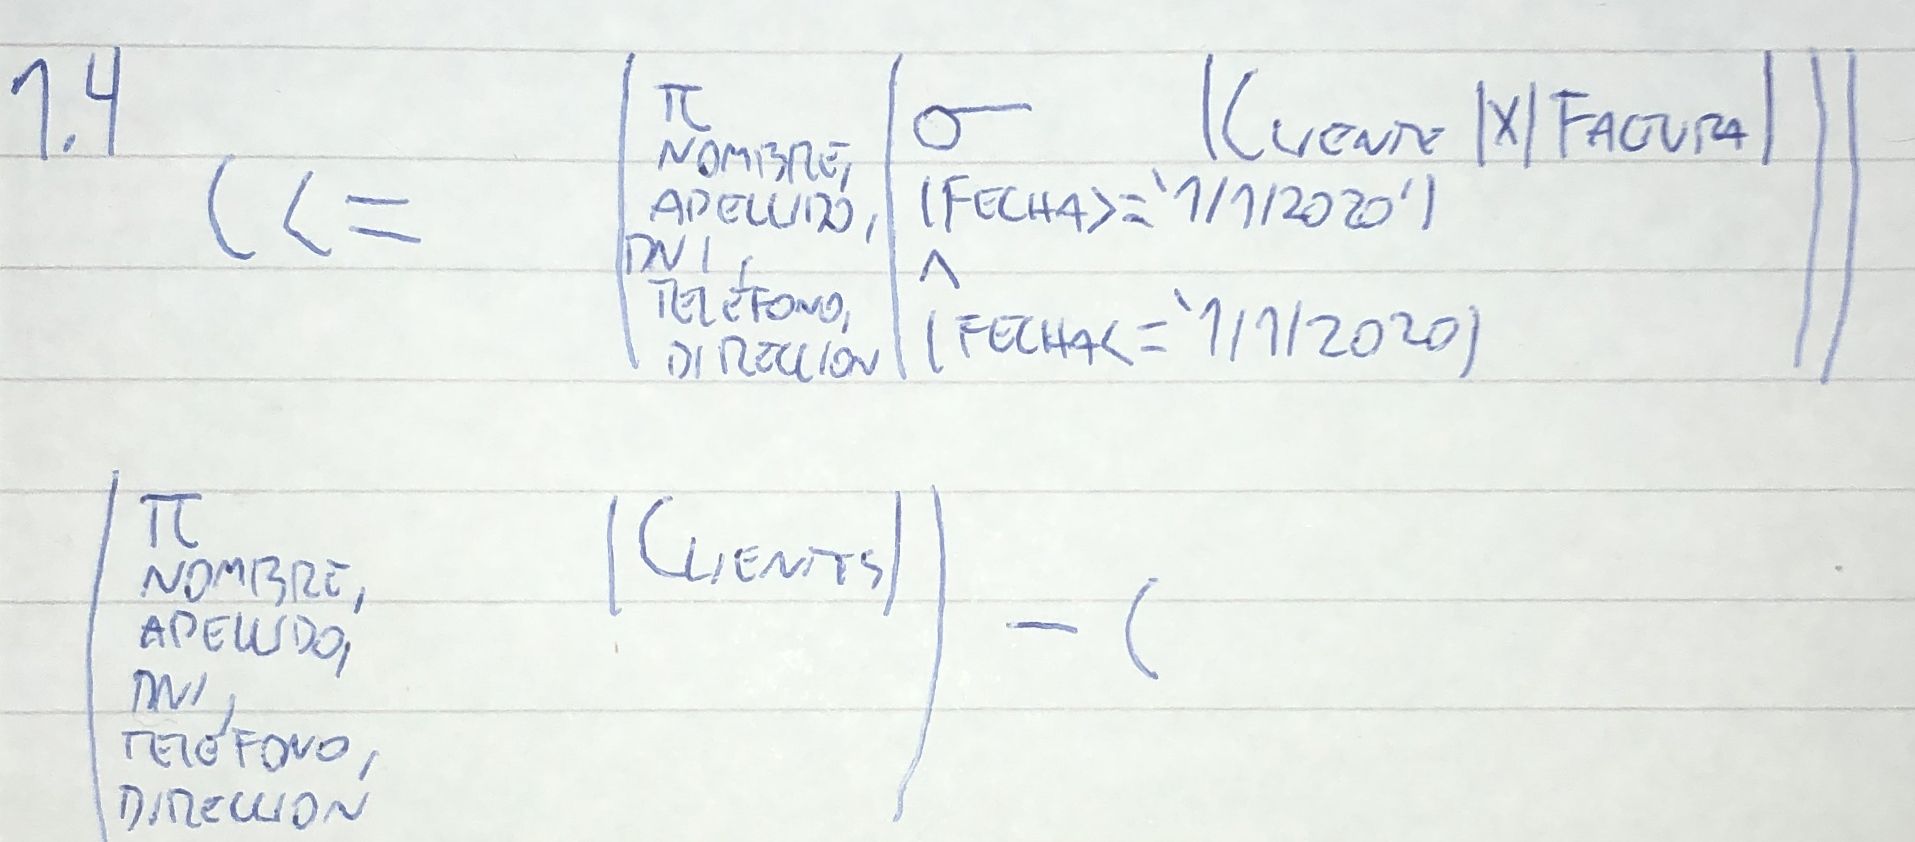 1.4 C <= (π NOMBRE, APELLIDO, DNI, TELÉFONO, DIRECCION (σ (FECHA>='1/1/2020') ∧ (FECHA<='1/1/2020) (CLIENTE |X| FACTURA)))
(π NOMBRE, APELLIDO, DNI, TELÉFONO, DIRECCION (CLIENTES)) - C